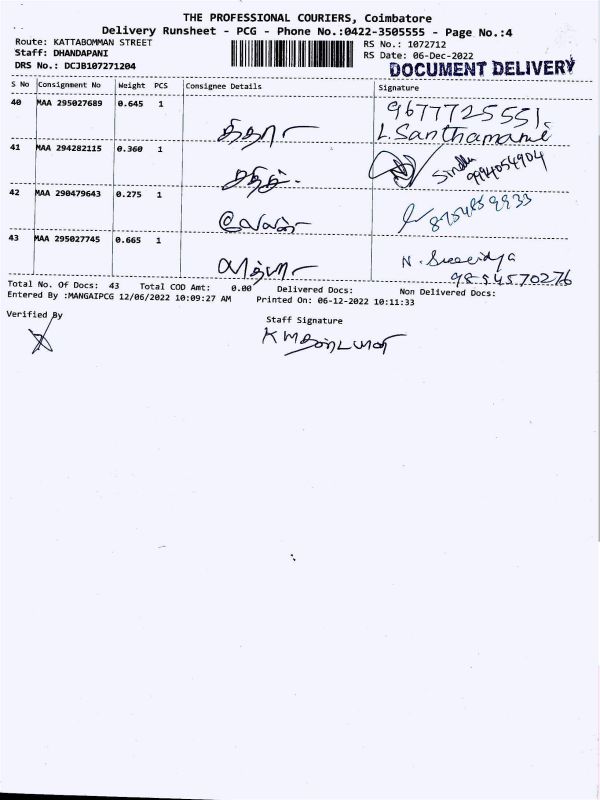 THE PROFESSIONAL COURIERS, Coimbatore
Delivery Runsheet - PCG - Phone No.:0422-3505555 - Page No.:4
Route: KATTABOMMAN STREET
RS No.: 1072712
Staff: DHANDAPANI
RS Date: 06-Dec-2022
DRS No.: DCJB107271204
DOCUMENT DELIVERY
S No Consignment No Weight PCS Consignee Details Signature
40 MAA 295027689 0.645 1 9677725551
L. Santhamani
41 MAA 294282115 0.360 1 Sindhu
9994054904
42 MAA 290479643 0.275 1 8754859933
43 MAA 295027745 0.665 1 N.
9854570276
Total No. Of Docs: 43 Total COD Amt: 0.00 Delivered Docs: Non Delivered Docs:
Entered By :MANGAIPCG 12/06/2022 10:09:27 AM Printed On: 06-12-2022 10:11:33
Verified By
Staff Signature